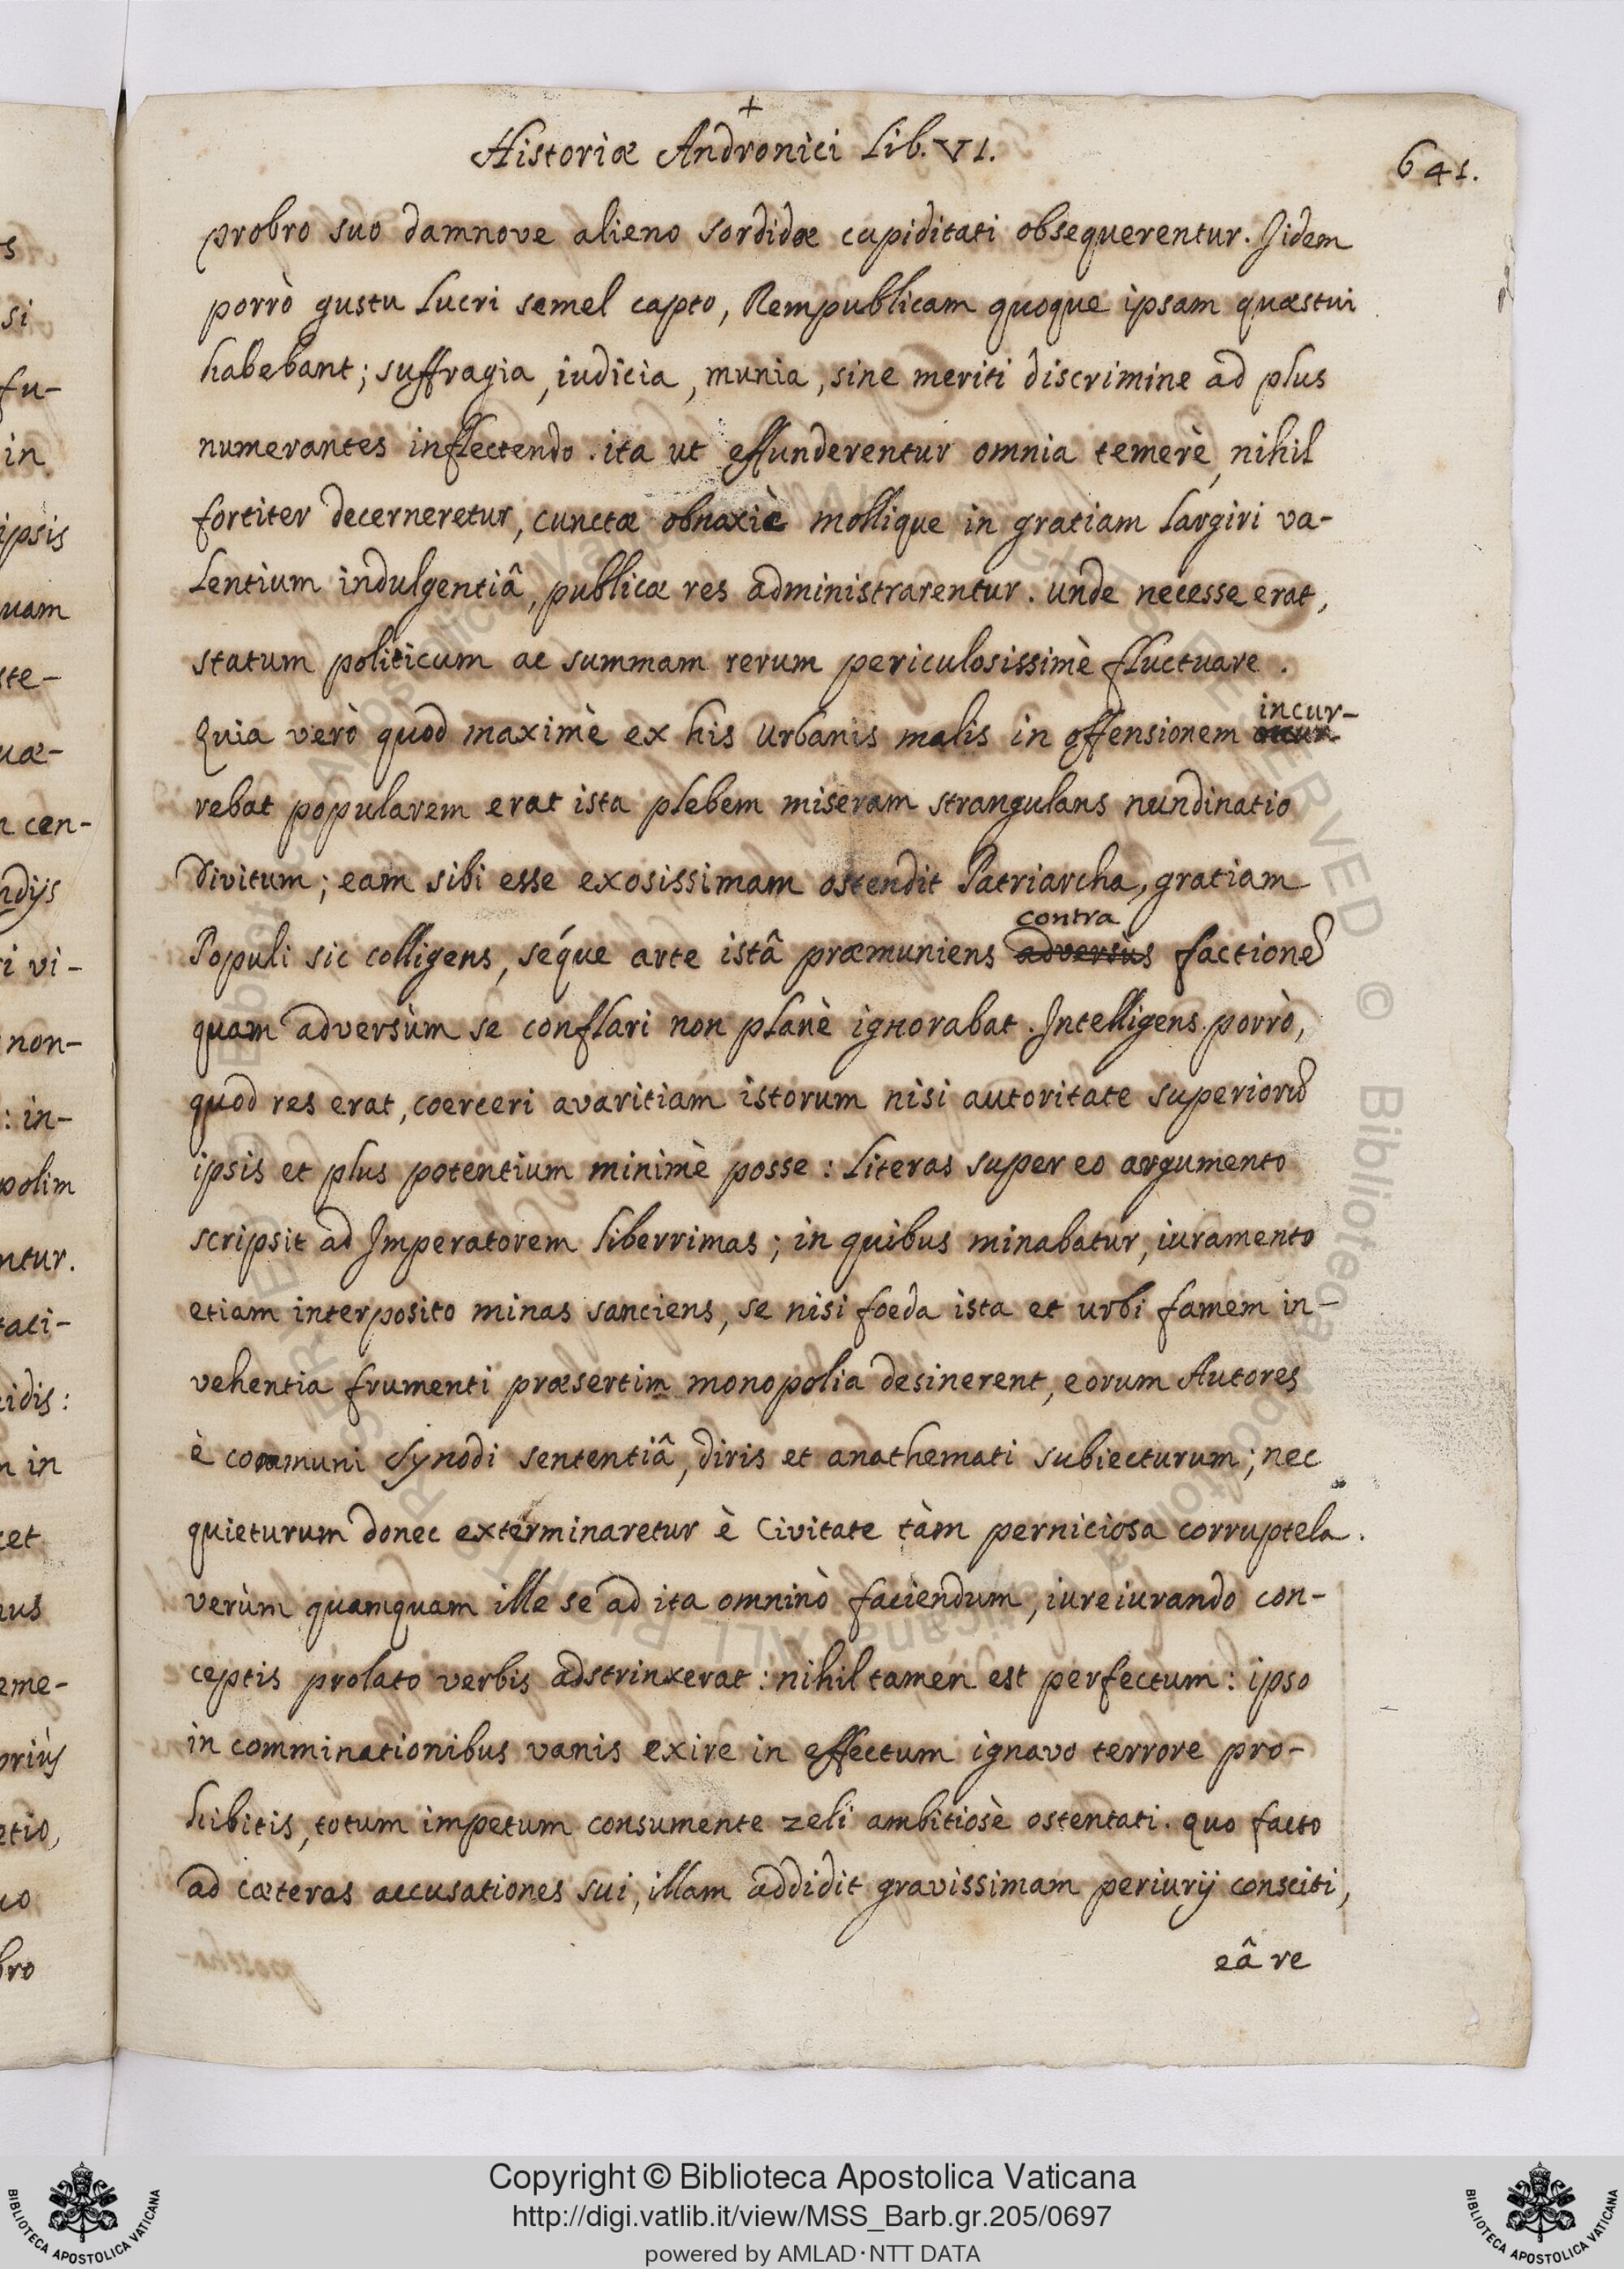 +
Historiæ Andronici Lib. VI.
641.
probro suo damnove alieno sordidæ cupiditati obsequerentur. Iidem
porrò gustu lucri semel capto, Rempublicam quoque ipsam quæstui
habebant; suffragia, iudicia, munia, sine meriti discrimine ad plus
numerantes inflectendo. ita ut effunderentur omnia temerè, nihil
fortiter decerneretur, cunctæ obnoxiè mollique in gratiam largiri va-
lentium indulgentiâ, publicæ res administrarentur. unde necesse erat,
statum politicum ac summam rerum periculosissimè fluctuare.
Quia verò quod maximè ex his urbanis malis in offensionem incur-
rebat popularem erat ista plebem miseram strangulans nundinatio
divitum; eam sibi esse exosissimam ostendit Patriarcha, gratiam
contra
Populi sic colligens, séque arte istâ præmuniens adversus factionẽ
quam adversùm se conflari non planè ignorabat. Intelligens porrò,
quod res erat, coerceri avaritiam istorum nisi autoritate superiorũ
ipsis et plus potentium minimè posse: literas super eo argumento
scripsit ad Imperatorem liberrimas; in quibus minabatur, iuramento
etiam interposito minas sanciens, se nisi foeda ista et urbi famem in-
vehentia frumenti præsertim monopolia desinerent, eorum Autores
è communi Synodi sententiâ, diris et anathemati subiecturum; nec
quieturum donec exterminaretur è Civitate tàm perniciosa corruptela.
verùm quamquam ille se ad ita omninò faciendum, iureiurando con-
ceptis prolato verbis adstrinxerat: nihil tamen est perfectum: ipso
in comminationibus vanis exire in effectum ignavo terrore pro-
hibitis, totum impetum consumente zeli ambitiosè ostentati. quo facto
ad cæteras accusationes sui, illam addidit gravissimam periurij consciti,
eâ re
s
si
fu-
in
ipsis
uam
ste-
uæ-
n cen-
ndijs
i vi-
non-
: in-
polim
ntur.
taci-
cidis:
n in
cet
nus
eme-
oriùs
etio,
uo
bro
Copyright © Biblioteca Apostolica Vaticana
http://digi.vatlib.it/view/MSS_Barb.gr.205/0697
powered by AMLAD·NTT DATA
BIBLIOTECA APOSTOLICA VATICANA
BIBLIOTECA APOSTOLICA VATICANA